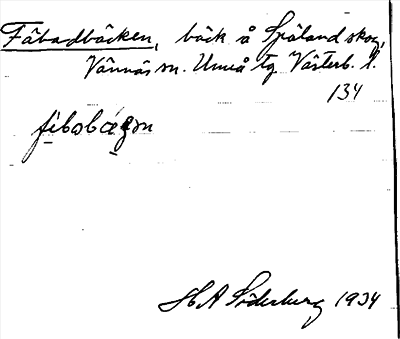 Fäbadbäcken, bäck å Själand skog,
Vännäs sn. Umeå tg Västerb. l.
134
fèbabǽgən
H A Söderberg 1934